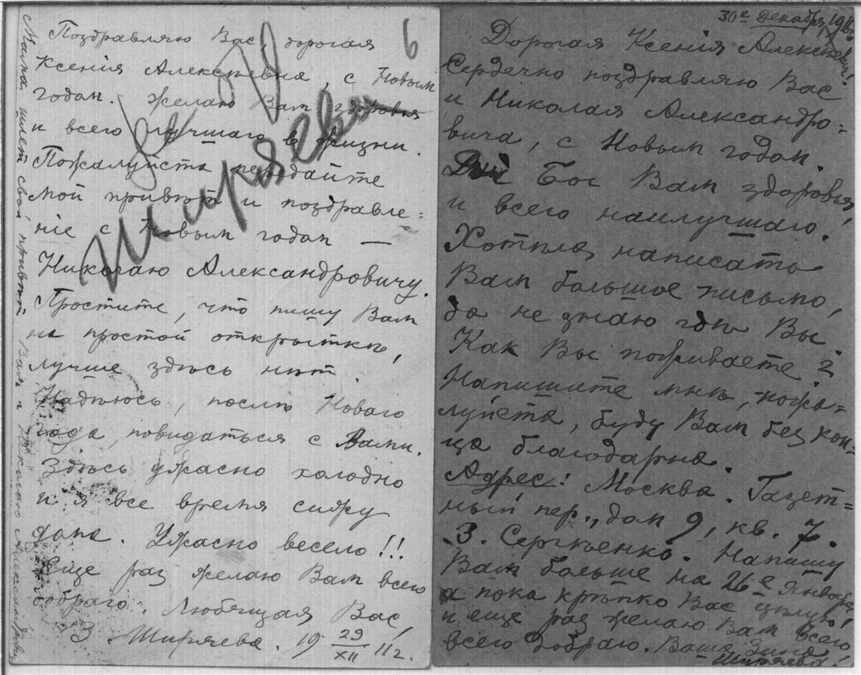 6
Поздравляю Вас, дорогая
Ксенія Алексѣевна, с Новым
годом. Желаю Вам здоровья
и всего лучшаго в жизни.
Пожалуйста передайте
мой привѣт и поздравле=
ніе с Новым годом —
Николаю Александровичу.
Простите, что пишу Вам
на простой открыткѣ,
лучше здѣсь нѣт.
Надѣюсь, послѣ Новаго
года, повидаться с Вами.
Здѣсь ужасно холодно
и я все время сижу
дома. Ужасно весело!!
Еще раз желаю Вам всего
добраго. Любящая Вас,
З. Ширяева. 19 29/XII 11 г.
Мама шлет свой привѣт Вам и Николаю Александровичу
Ширяева
30го декабря, 19
Дорогая Ксенія Алексѣевна!
Сердечно поздравляю Вас
и Николая Александро=
вича, с Новым годом.
Дай Бог Вам здоровья,
и всего наилучшаго.
Хотѣла написать
Вам большое письмо,
да не знаю гдѣ Вы.
Как Вы поживаете?
Напишите мнѣ, пожа=
луйста, буду Вам без кон=
ца благодарна.
Адрес: Москва. Газет=
ный пер., дом 9, кв. 7.
З. Сергѣенко. Напишу
Вам больше на 26е Января,
а пока крѣпко Вас цѣлую,
и еще раз желаю Вам всего
всего добраго. Ваша Зина
Ширяева!